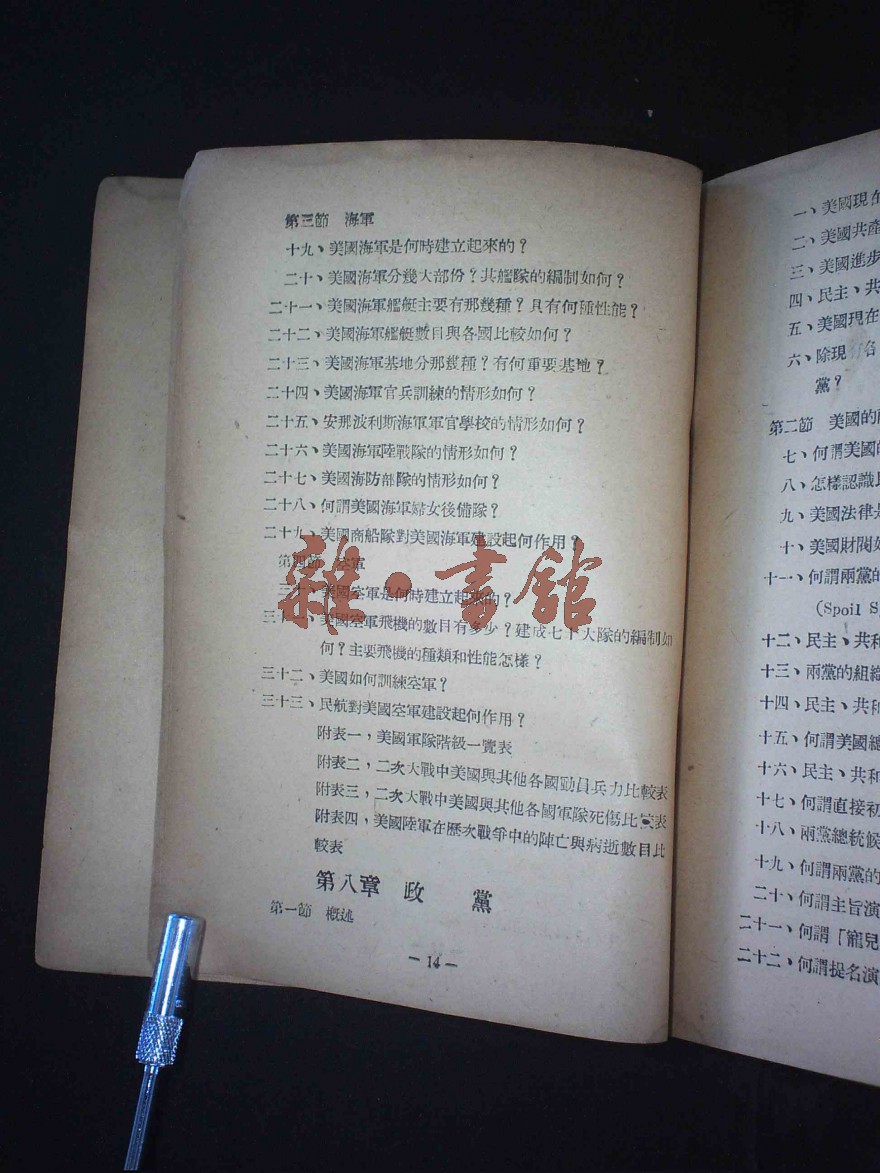 第三節 海軍
十九、美國海軍是何時建立起來的？
二十、美國海軍分幾大部份？共艦隊的編制如何？
二十一、美國海軍艦艇主要有那幾種？具有何種性能？
二十二、美國海軍艦艇數目與各國比較如何？
二十三、美國海軍基地分那幾種？有何重要基地？
二十四、美國海軍官兵訓練的情形如何？
二十五、安那波利斯海軍軍官學校的情形如何？
二十六、美國海軍陸戰隊的情形如何？
二十七、美國海防部隊的情形如何？
二十八、何謂美國海軍婦女後備隊？
二十九、美國商船隊對美國海軍建設起何作用？
第四節 空軍
三十、美國空軍是何時建立起來的？
三十一、美國空軍飛機的數目有多少？建成七十大隊的編制如
何？主要飛機的種類和性能怎樣？
三十二、美國如何訓練空軍？
三十三、民航對美國空軍建設起何作用？
附表一，美國軍隊階級一覽表
附表二，二次大戰中美國與其他各國動員兵力比較表
附表三，二次大戰中美國與其他各國軍隊死傷比較表
附表四，美國陸軍在歷次戰爭中的陣亡與病逝數目比
較表
第八章 政 黨
第一節 概述
—14—
雜·書館
一、美國現在
二、美國共產
三、美國進步
四、民主、共
五、美國現在
六、除現有名
黨？
第二節 美國的
七、何謂美國的
八、怎樣認識
九、美國法律是
十、美國財閥如
十一、何謂兩黨的
(Spoil S
十二、民主、共和
十三、兩黨的組織
十四、民主、共和
十五、何謂美國總
十六、民主、共和
十七、何謂直接初
十八、兩黨總統候
十九、何謂兩黨的
二十、何謂主旨演
二十一、何謂「寵兒
二十二、何謂提名演